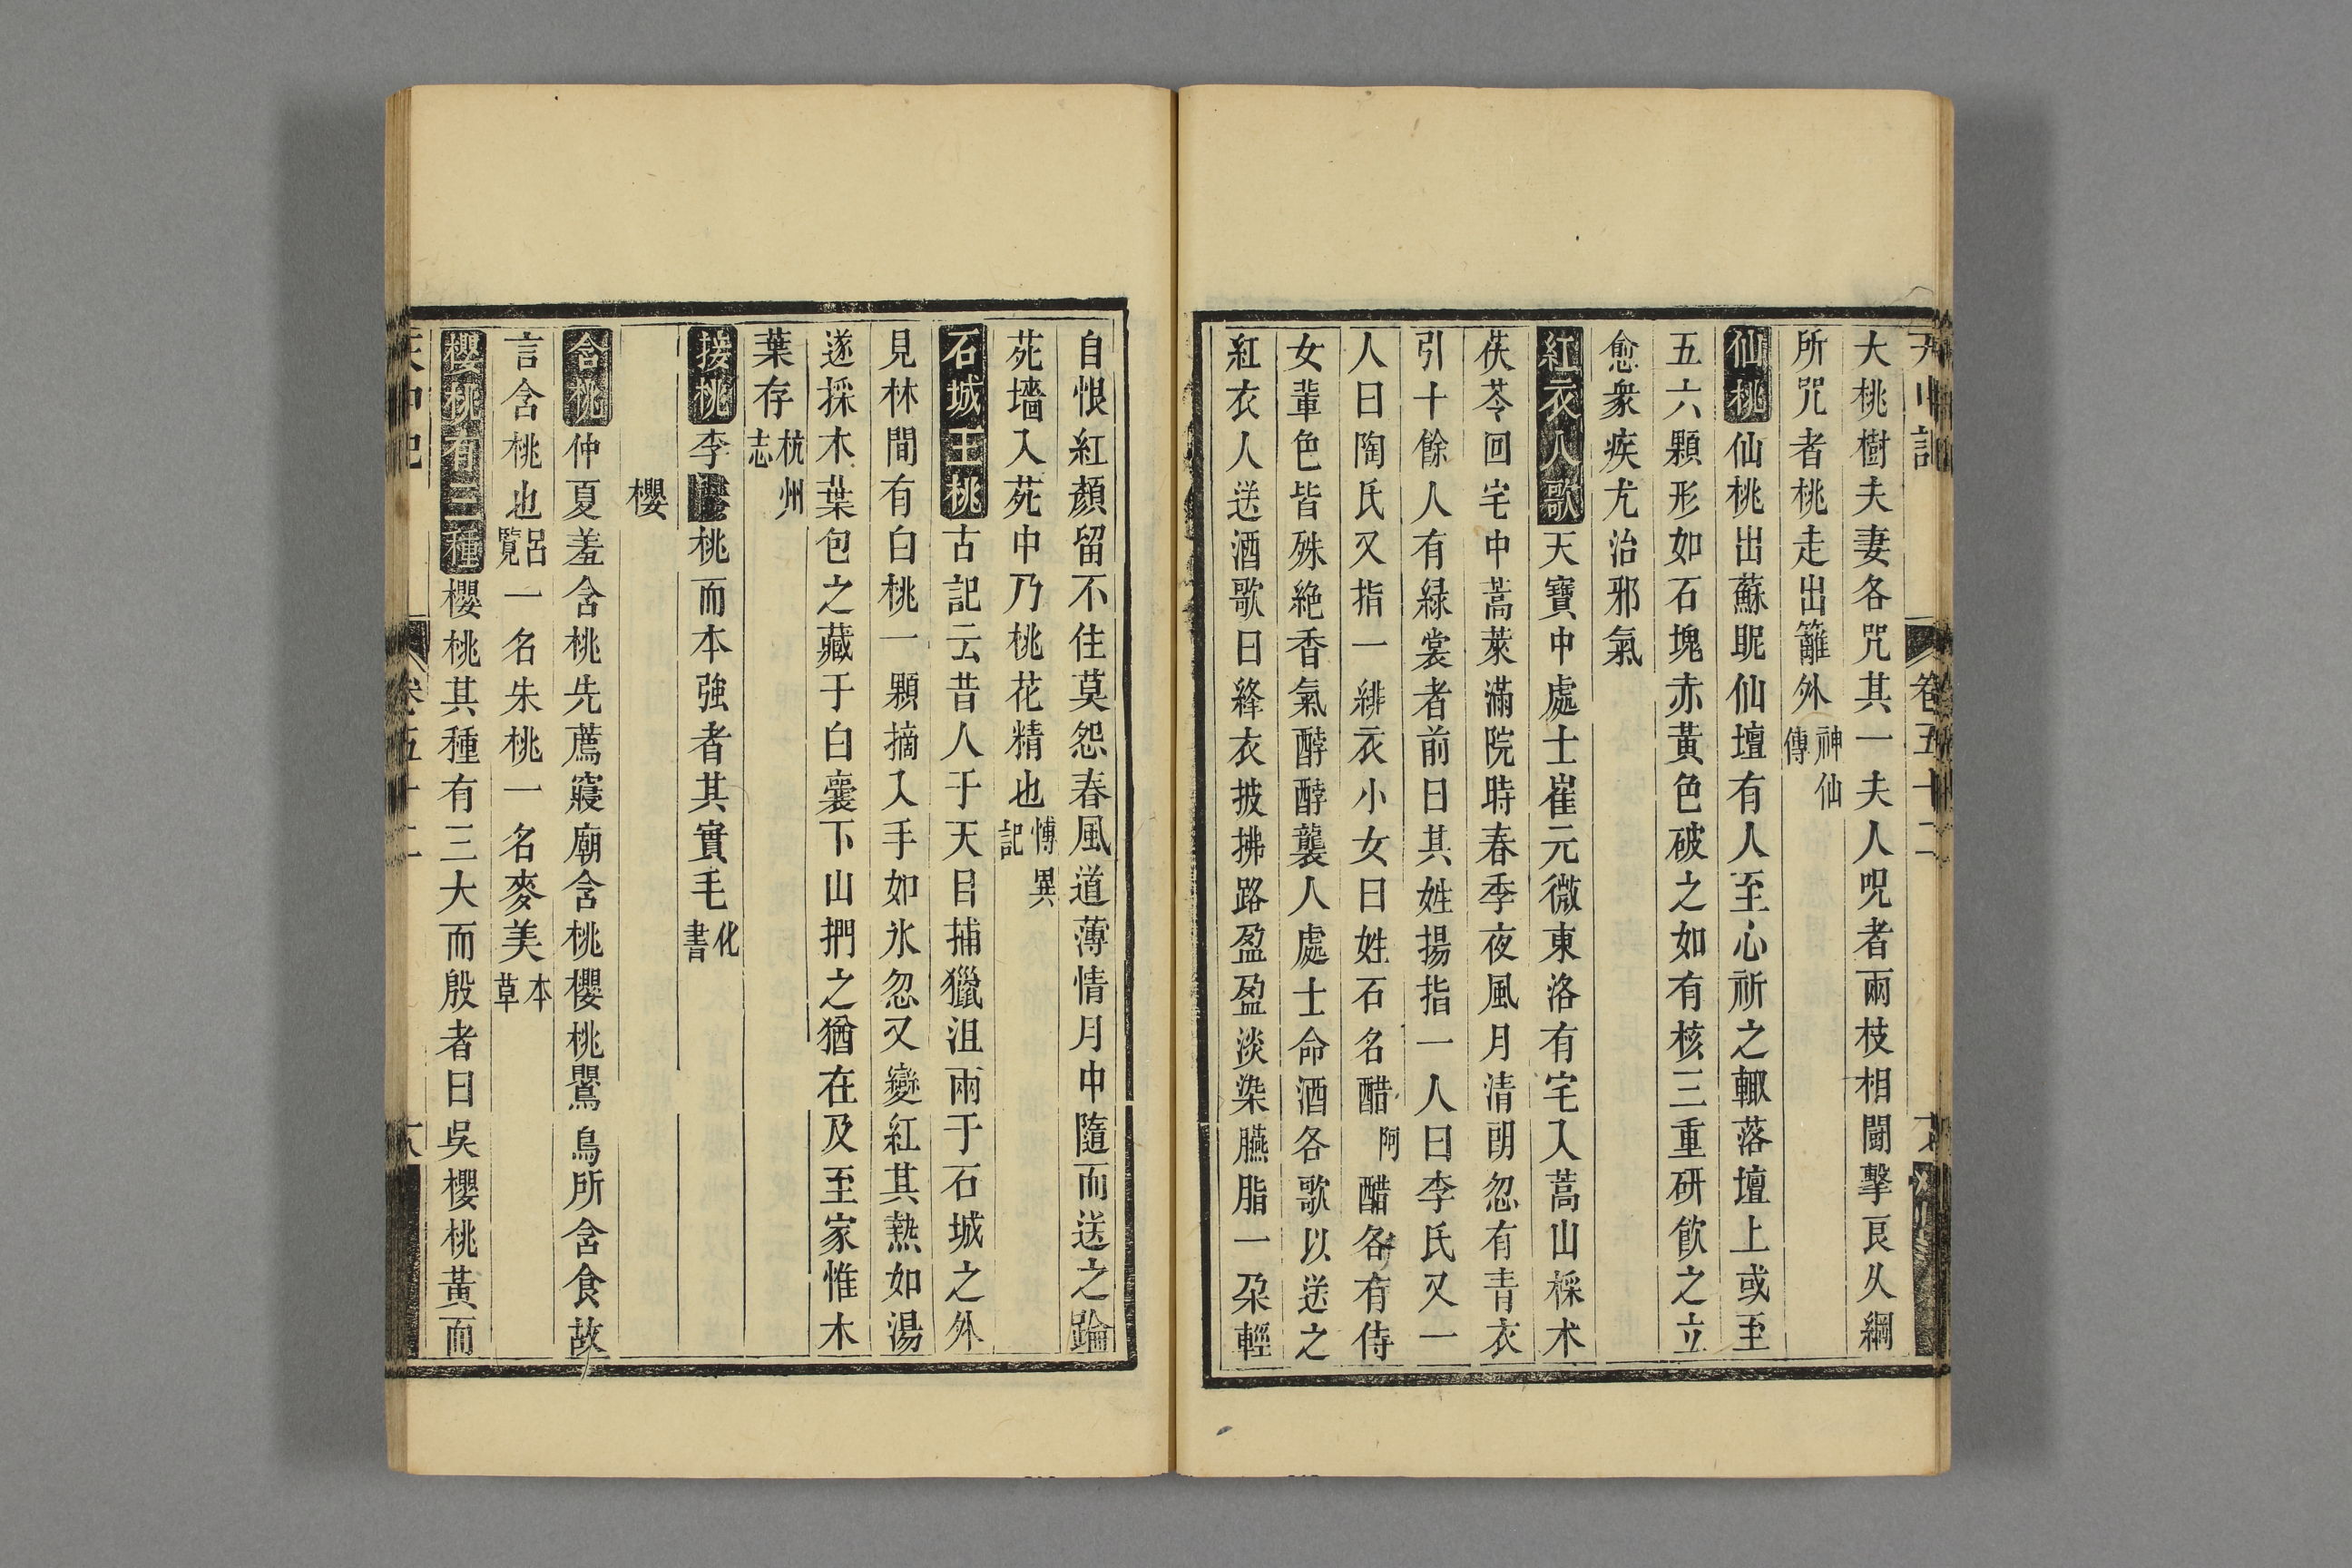 大桃樹夫妻各咒其一夫人呪者兩枝相鬬擊良乆綱
所咒者桃走出籬外神仙傳
仙桃仙桃出蘇眤仙壇有人至心祈之輙落壇上或至
五六顆形如石塊赤黃色破之如有核三重研飲之立
愈衆疾尤治邪氣
紅衣人歌天寶中處士崔元微東洛有宅入蒿山採术
茯苓回宅中蒿萊滿院時春季夜風月清朗忽有青衣
引十餘人有緑裳者前曰其姓揚指一人曰李氏又一
人曰陶氏又指一緋衣小女曰姓石名醋阿醋各有侍
女輩色皆殊絶香氣酵酵襲人處士命酒各歌以送之
紅衣人送酒歌曰絳衣披拂路盈盈淡染臙脂一朶輕
自恨紅顏留不住莫怨春風道薄情月中隨而送之踰
苑墻入苑中乃桃花精也博異記
石城王桃古記云昔人于天目捕獵沮雨于石城之外
見林間有白桃一顆摘入手如氷忽又變紅其熱如湯
遂採木葉包之藏于白囊下山捫之猶在及至家惟木
葉存杭州志
接桃李接桃而本強者其實毛化書
櫻
含桃仲夏羞含桃先薦寢廟含桃櫻桃鸎鳥所含食故
言含桃也呂覽一名朱桃一名麥美本草
櫻桃有三種櫻桃其種有三大而殷者曰吳櫻桃黃而